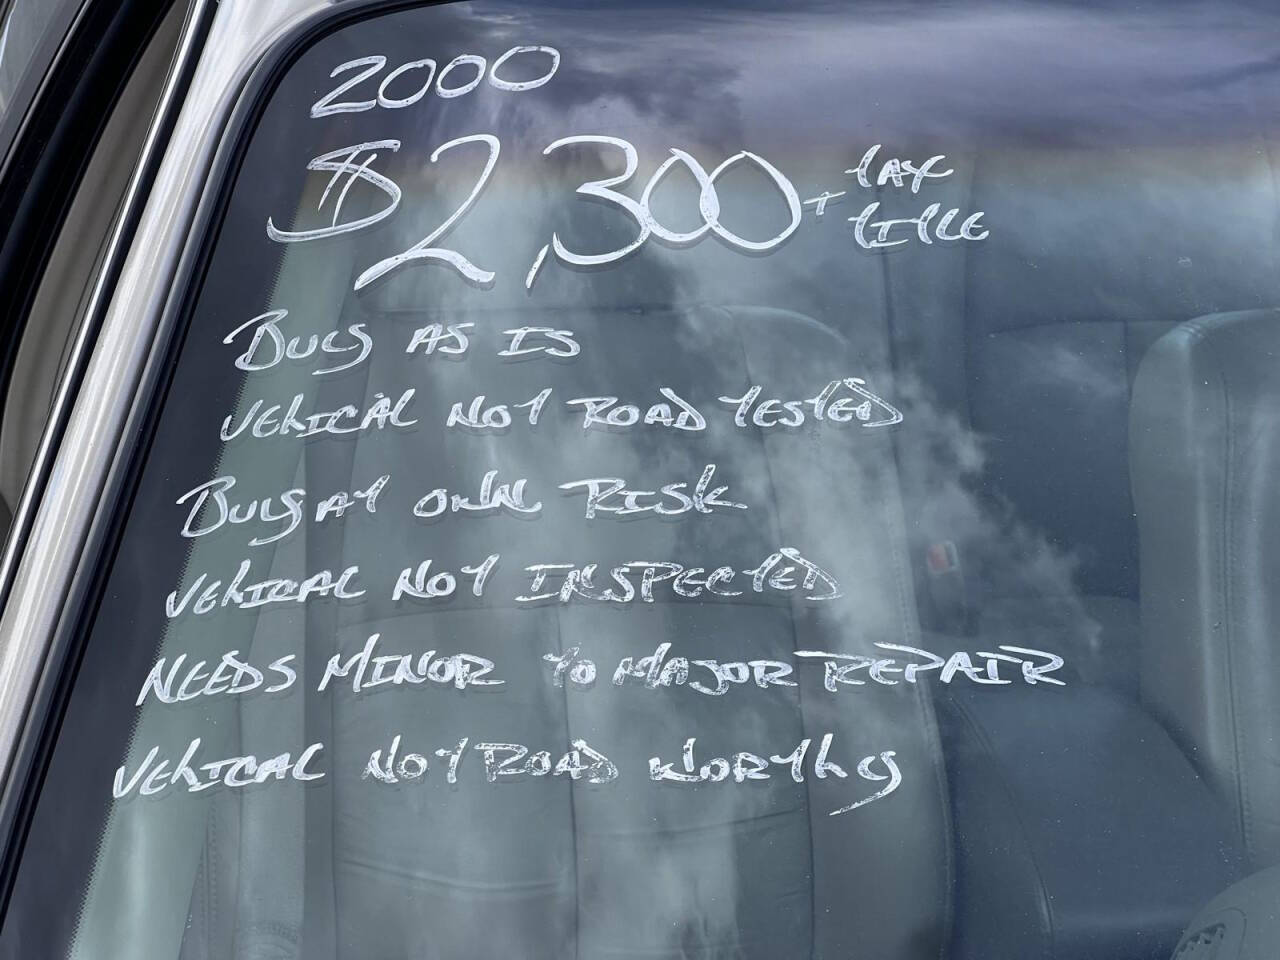 2000
$2,300 + tax
title
Buy AS IS
VEhICAL NOT ROAD TESTED
Buy AT OWN RISk
VEhICAL NOT INSPECTED
NEEDS MINOR TO MAJOR REPAIR
VEhICAL NOT ROAD WORThy